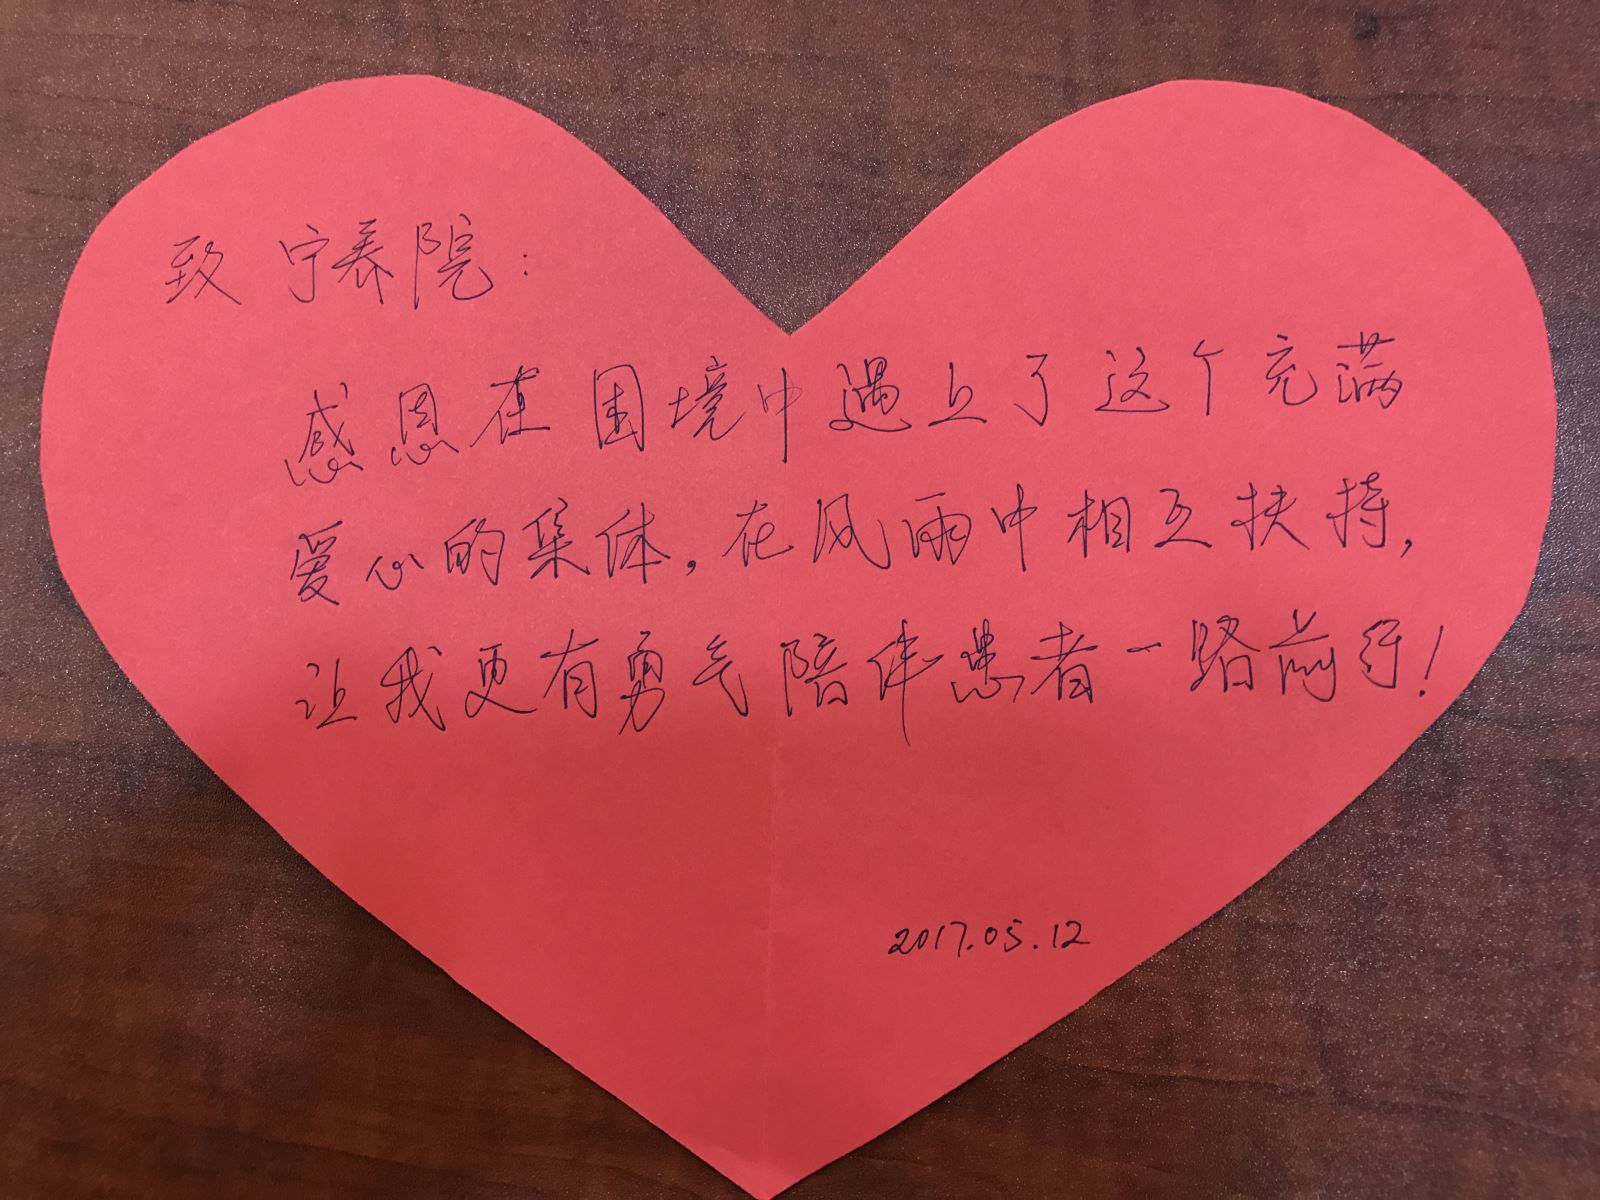 致 宁养院：
感恩在困境中遇上了这个充满
爱心的集体，在风雨中相互扶持，
让我更有勇气陪伴患者一路前行！
2017.05.12